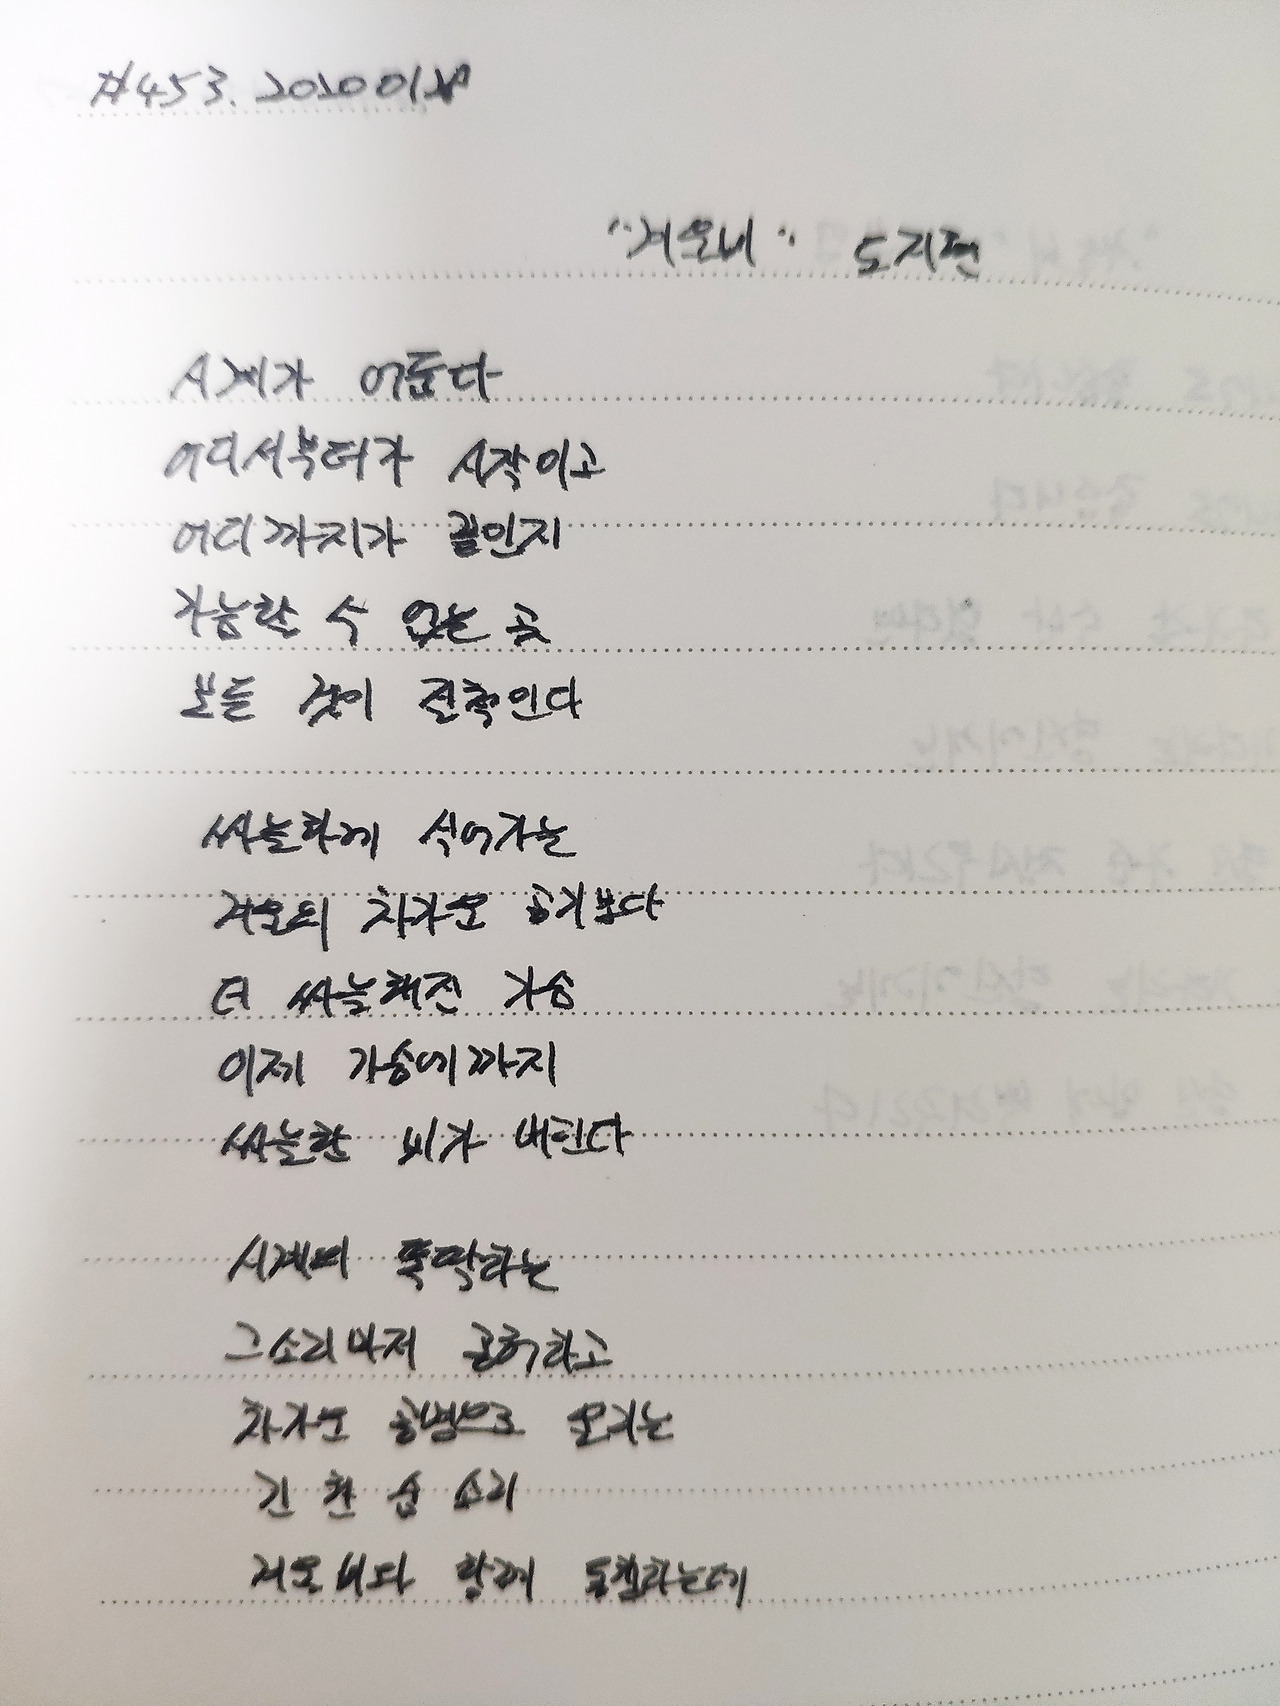 #453. 202001
"겨울비" 도지현
시계가 어둡다
어디서부터가 시작이고
어디까지가 끝인지
가늠할 수 없는 곳
모든 것이 전학인다
싸늘하게 식어가는
겨울의 차가운 공기보다
더 싸늘해진 가슴
이제 가슴에까지
싸늘한 비가 내린다
시계의 똑딱하는
그소리마저 공허하고
차가운 공명으로 울리는
긴 한숨 소리
겨울비다 함께 동침하는데